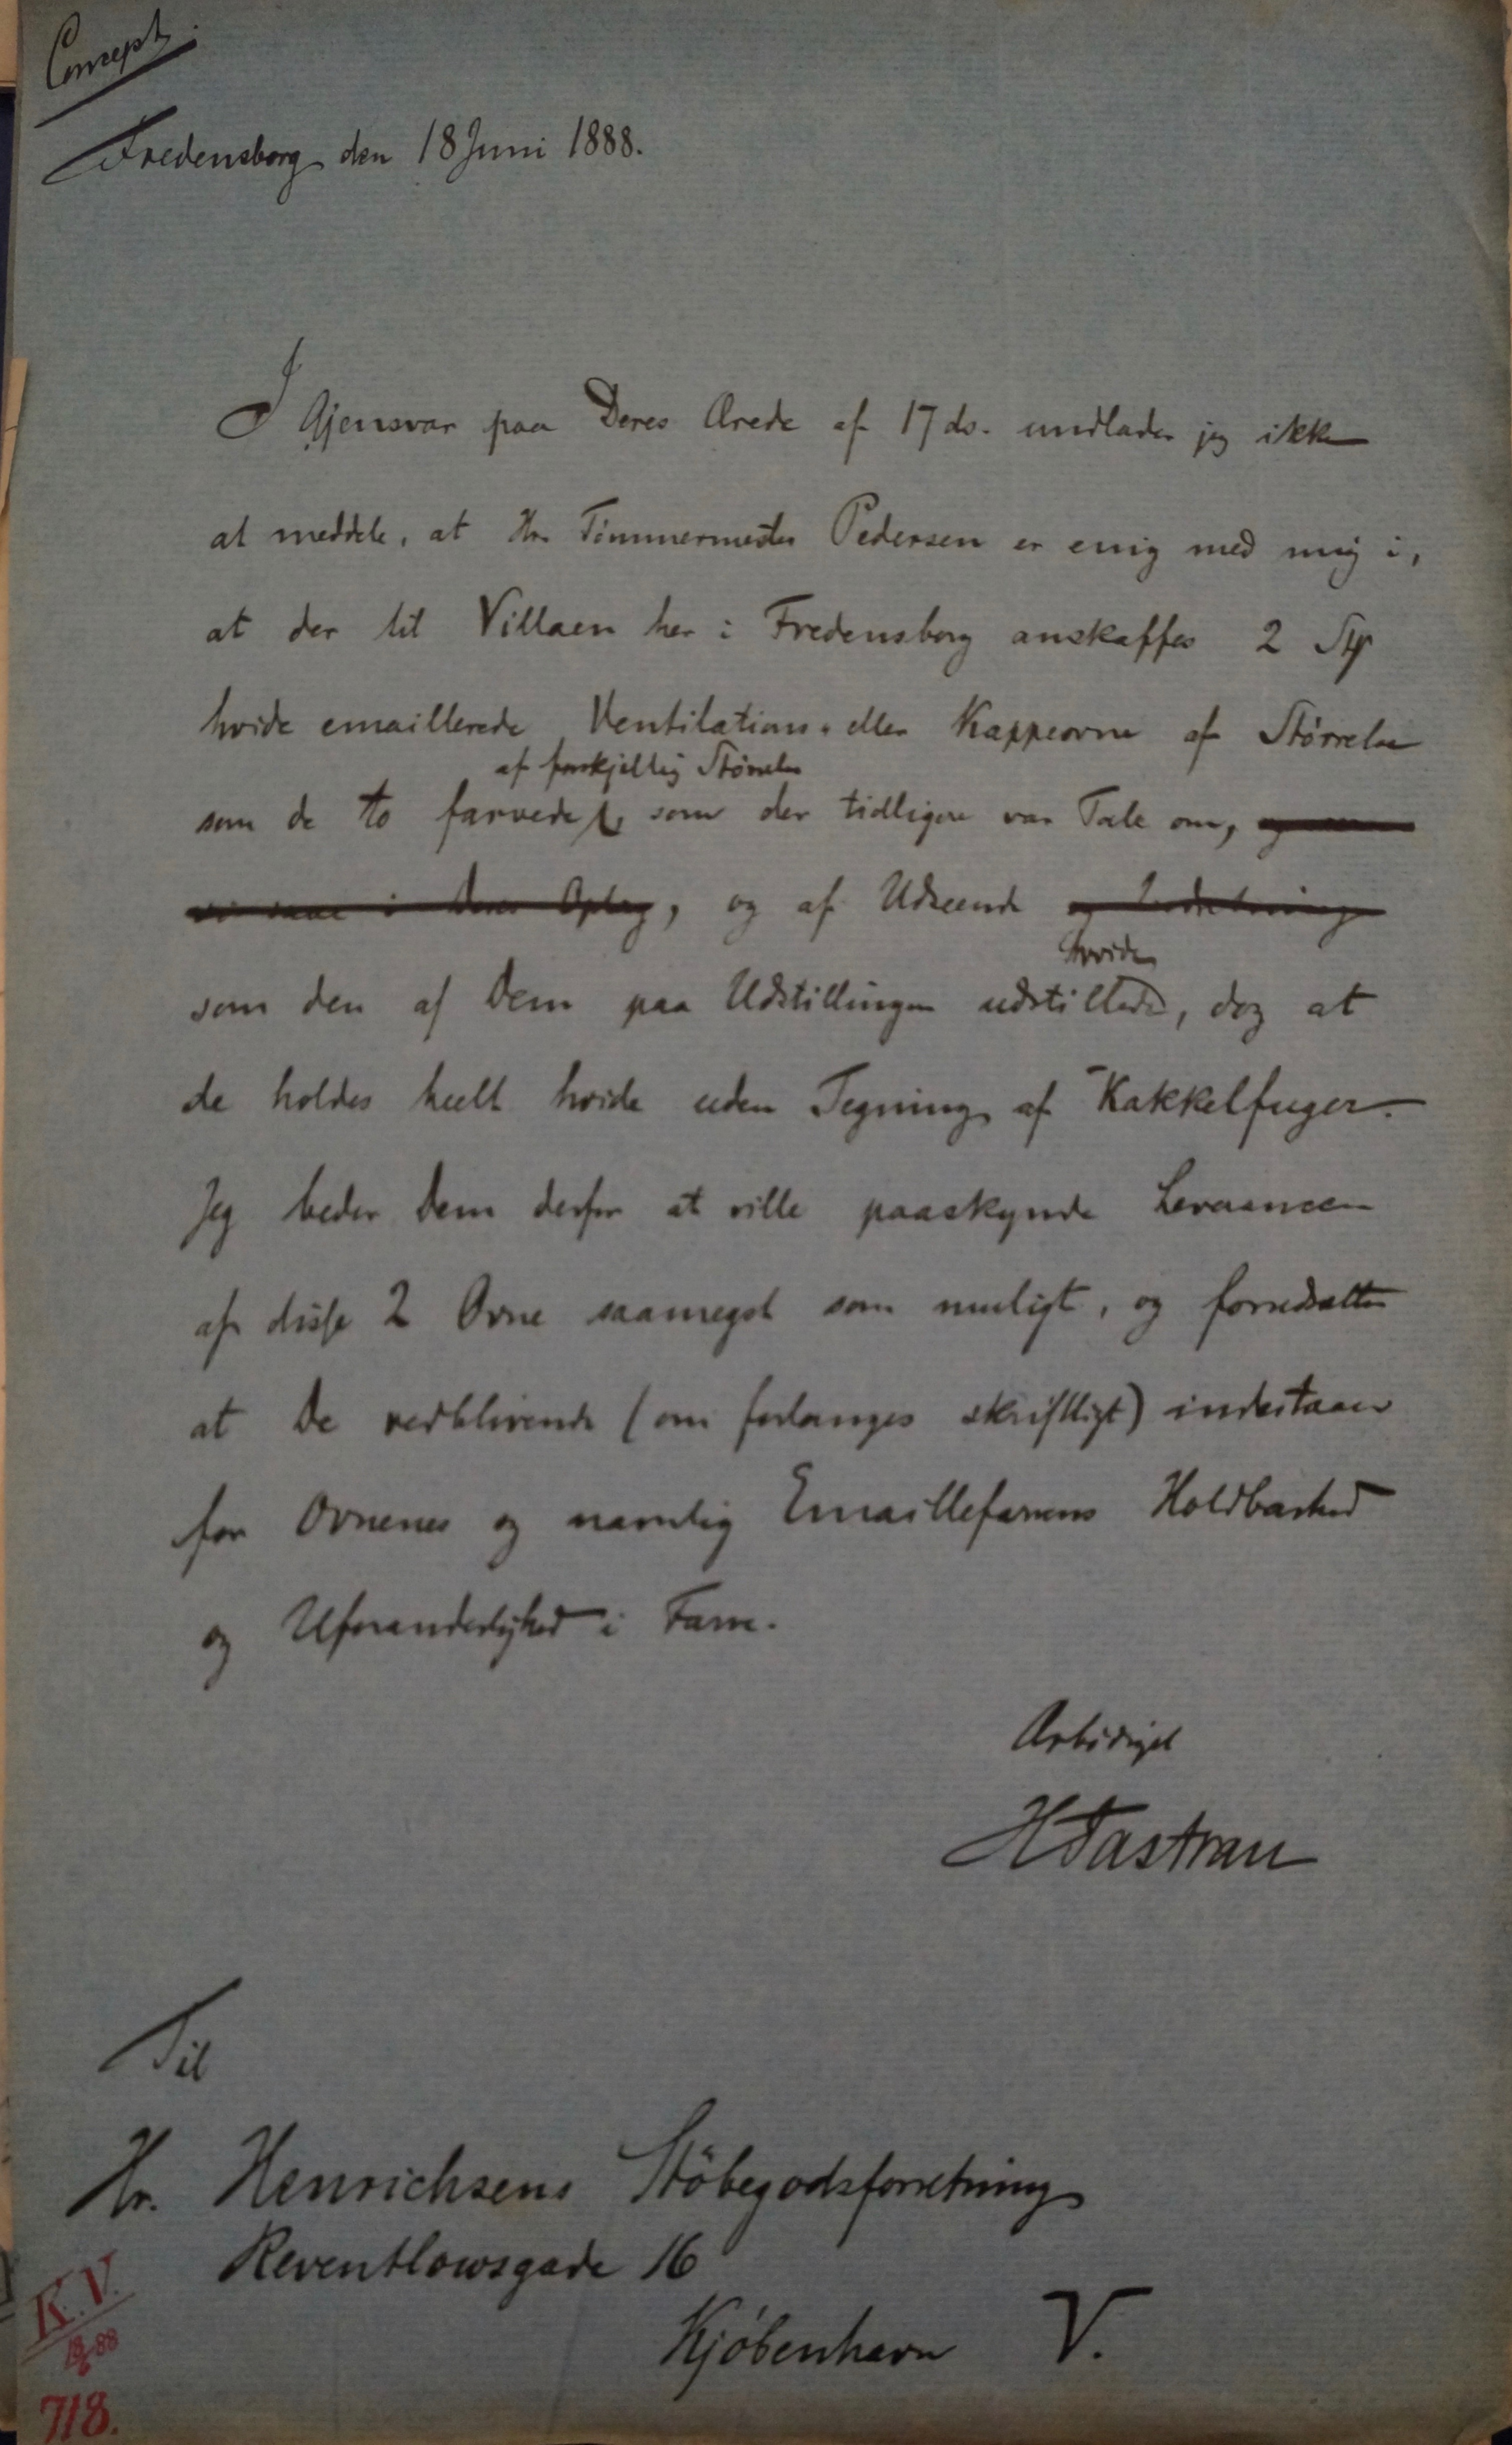 Concept.
Fredensborg den 18 Juni 1888.
I Gjensvar paa Deres Ærede af 17 ds. undlader jeg ikke
at meddele, at Hr. Tømmermester Pedersen er enig med mig i,
at der til Villaen her i Fredensborg anskaffes 2 Stk
hvide emaillerede Ventilations- eller Kappeovne af Størrelse
af forskjellig Størrelse
som de to farvede, som der tidligere var Tale om,
, og af Udseende
hvide
som den af Dem paa Udstillingen udstillede, dog at
de holdes heelt hvide uden Tegning af Kakkelfuger.
Jeg beder Dem derfor at ville paaskynde Leverancen
af disse 2 Ovne saameget som muligt, og forudsætter
at De vedblivende (om forlanges skriftligt) indestaaer
for Ovnenes og navnlig Emaillefarvens Holdbarhed
og Uforanderlighed i Farve.
Ærbødigst
HTastrau
Til
Hr. Henrichsens Støbegodsforretning
Reventlowsgade 16
Kjøbenhavn V.
K.V.
18/6 88
718.